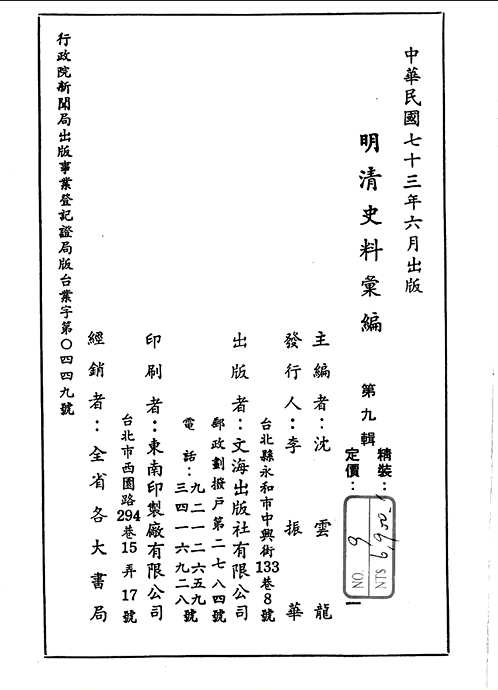 中華民國七十三年六月出版
明清史料彙編 第九輯
精裝：
定價：
NO. 9
NT$ 6,900
主編者：沈雲龍
發行人：李振華
台北縣永和市中興街133巷8號
出版者：文海出版社有限公司
郵政劃撥戶第二七八四號
電話：九二一二六五九
三四一六九二八號
印刷者：東南印製廠有限公司
台北市西園路294巷15弄17號
經銷者：全省各大書局
行政院新聞局出版事業登記證局版台業字第〇四四九號